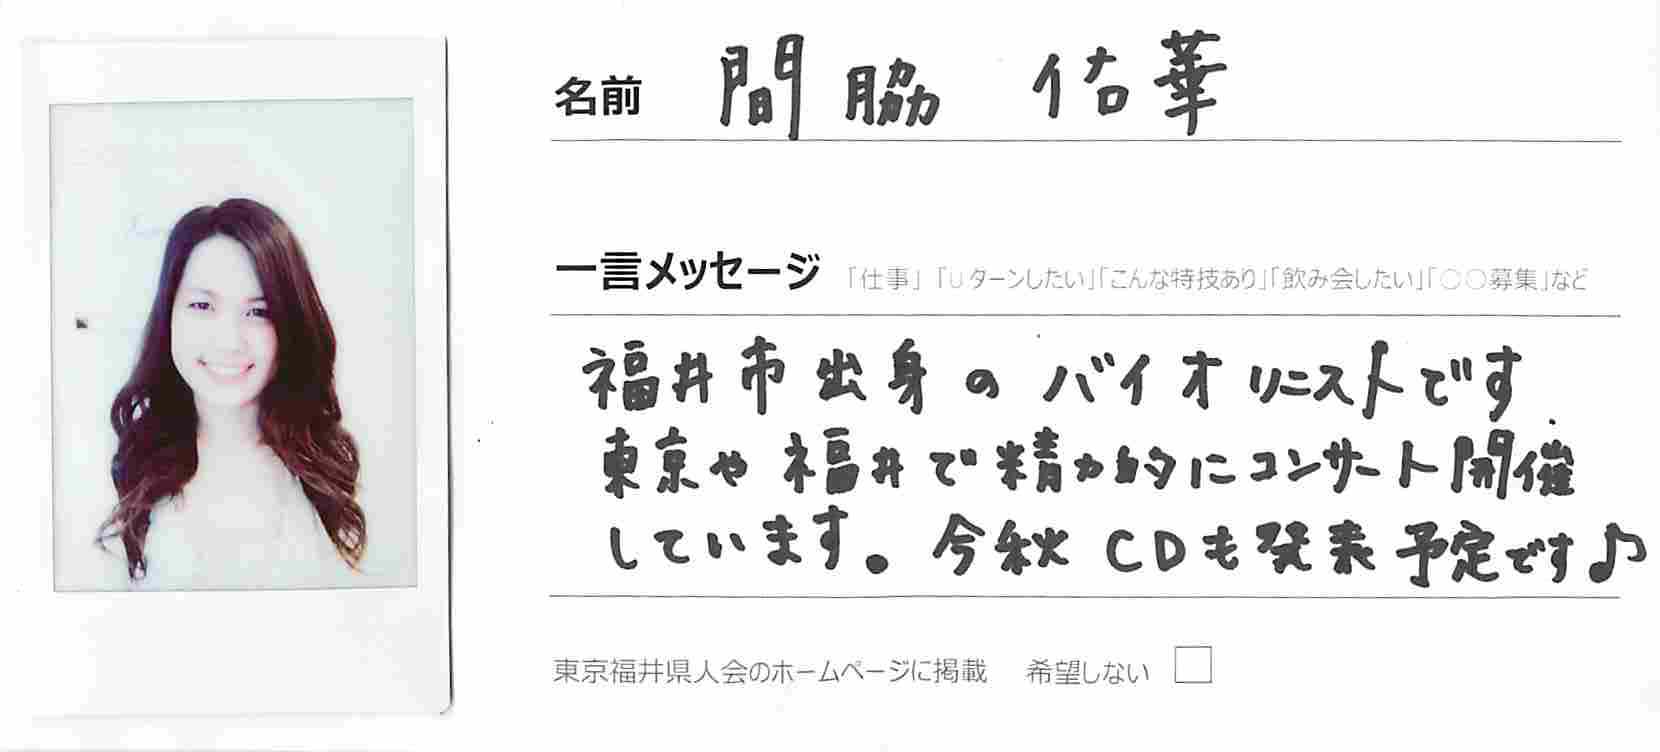 名前 間脇 佑華
一言メッセージ 「仕事」「Uターンしたい」「こんな特技あり」「飲み会したい」「○○募集」など
福井市出身の バイオリニストです.
東京や福井で精力的にコンサート開催
しています。今秋CDも発表予定です♪
東京福井県人会のホームページに掲載 希望しない □